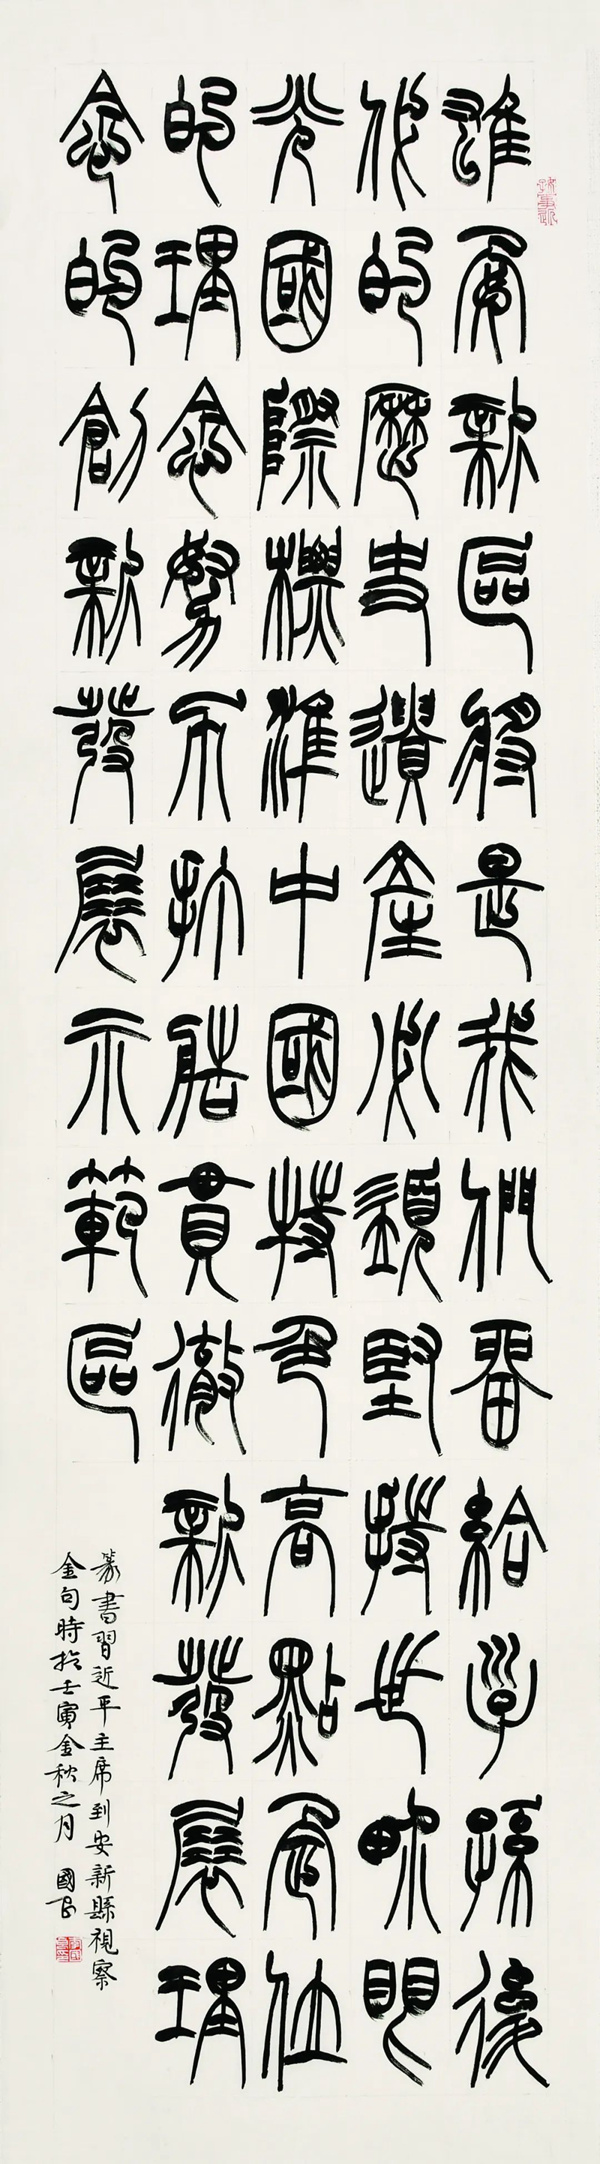 雄安新區將是我們留給子孫後
代的歷史遺產必須堅持世界眼
光國際標準中國特色高點定位
的理念努力打造貫徹新發展理
念的創新發展示範區
篆書習近平主席到安新縣視察
金句時於壬寅金秋之月 國